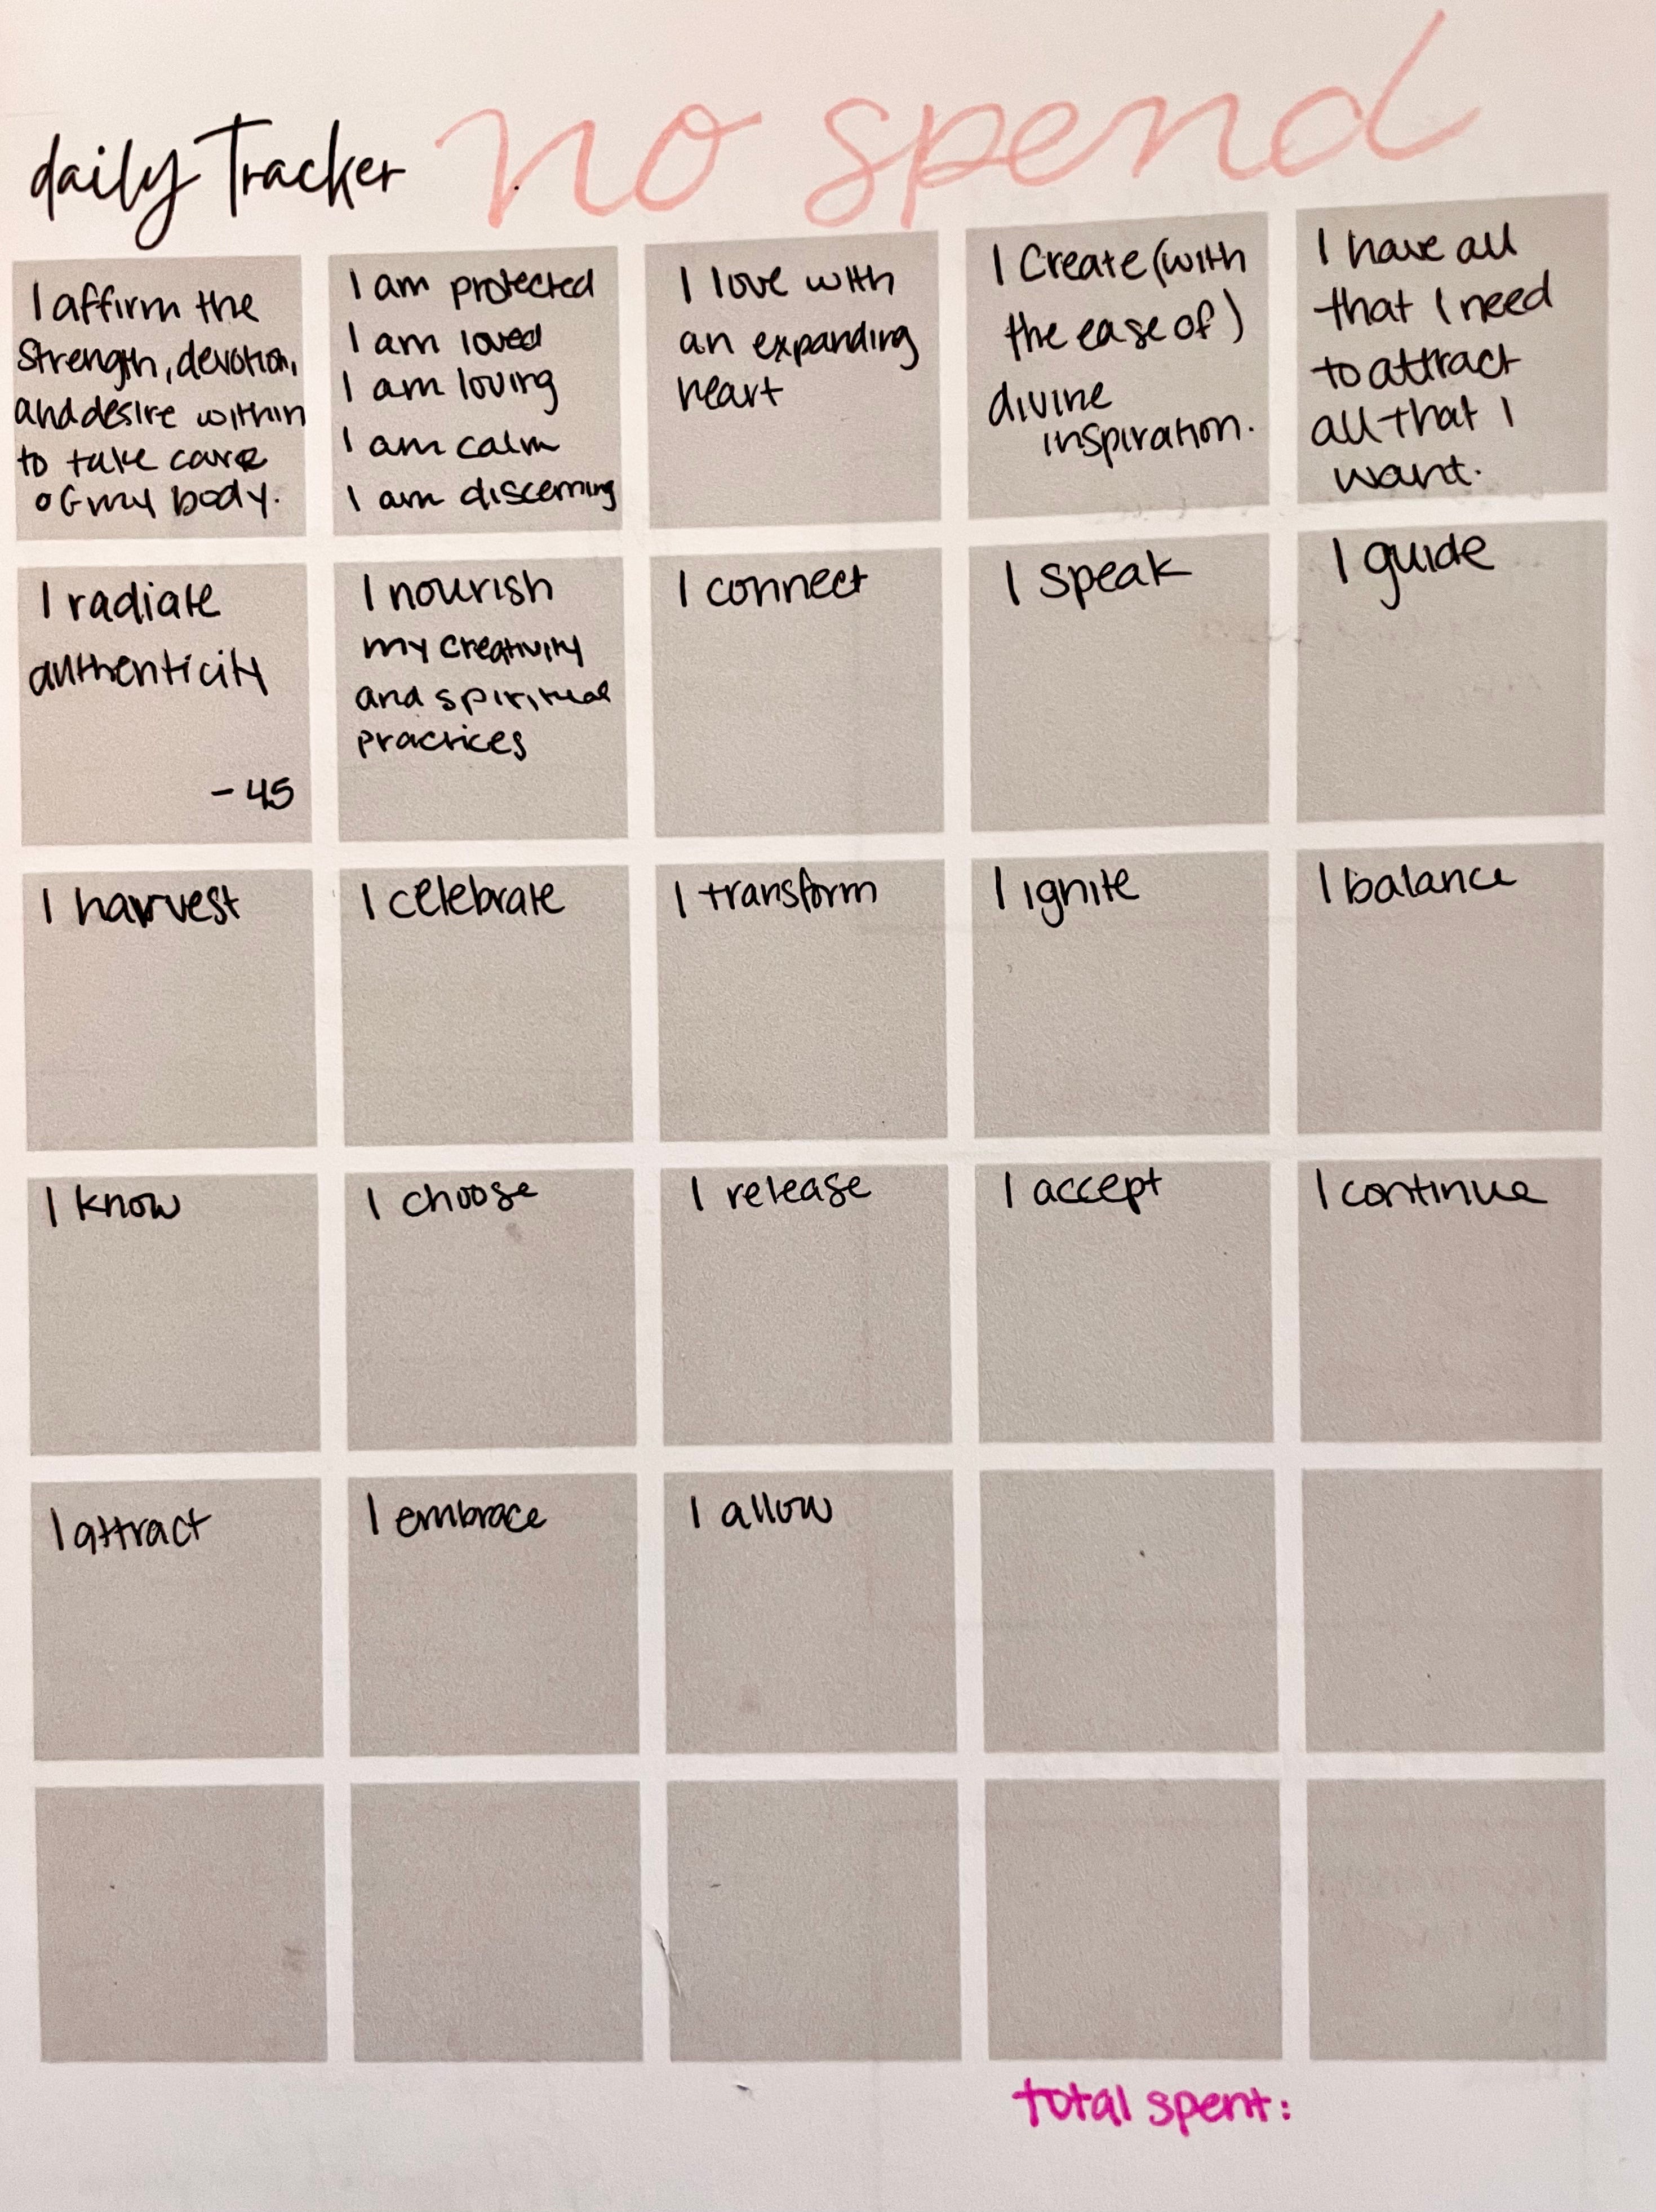 daily Tracker no spend
I affirm the
strength, devotion,
and desire within
to take care
of my body.
I am protected
I am loved
I am loving
I am calm
I am discerning
I love with
an expanding
heart
I Create (with
the ease of)
divine
inspiration.
I have all
that I need
to attract
all that I
want.
I radiate
authenticity
- 45
I nourish
my creativity
and spiritual
practices
I connect
I speak
I guide
I harvest
I celebrate
I transform
I ignite
I balance
I know
I choose
I release
I accept
I continue
I attract
I embrace
I allow
total spent: